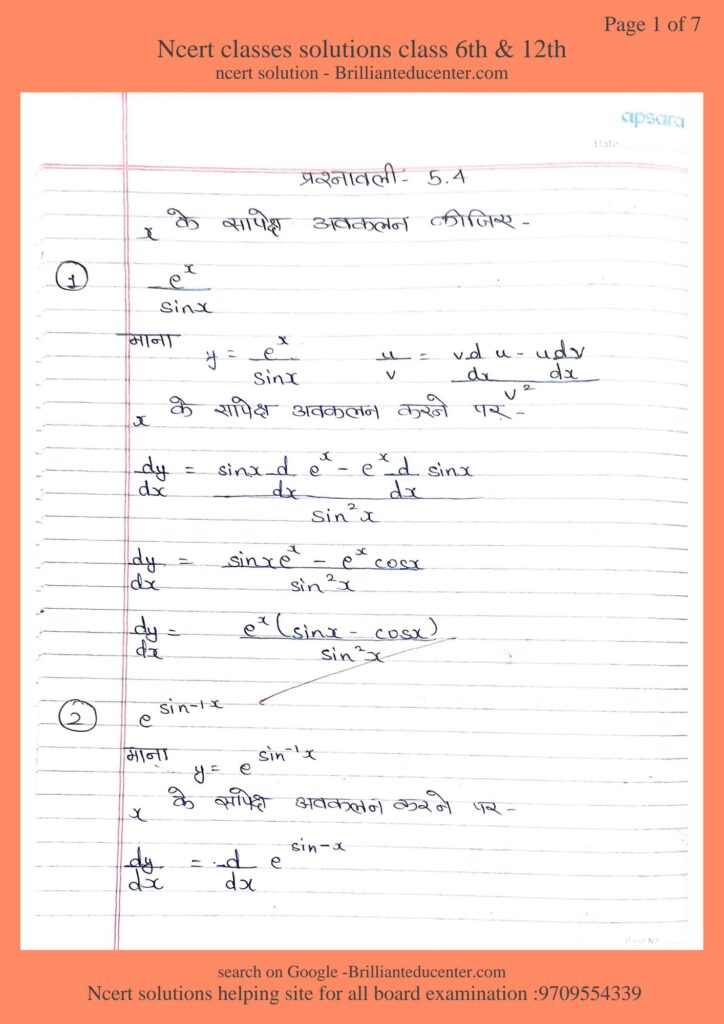 Page 1 of 7
Ncert classes solutions class 6th & 12th
ncert solution - Brillianteducenter.com
apsara
Date
प्रश्नावली - 5.4
x के सापेक्ष अवकलन कीजिए -
① e^x / sinx
माना y = e^x / sinx    u/v = (v d/dx u - u dv/dx) / v²
x के सापेक्ष अवकलन करने पर -
dy/dx = (sinx d/dx e^x - e^x d/dx sinx) / sin²x
dy/dx = (sinxe^x - e^x cosx) / sin²x
dy/dx = e^x (sinx - cosx) / sin²x
② e^sin-1x
माना y = e^sin⁻¹x
x के सापेक्ष अवकलन करने पर -
dy/dx = d/dx e^sin-x
Page No
search on Google -Brillianteducenter.com
Ncert solutions helping site for all board examination :9709554339